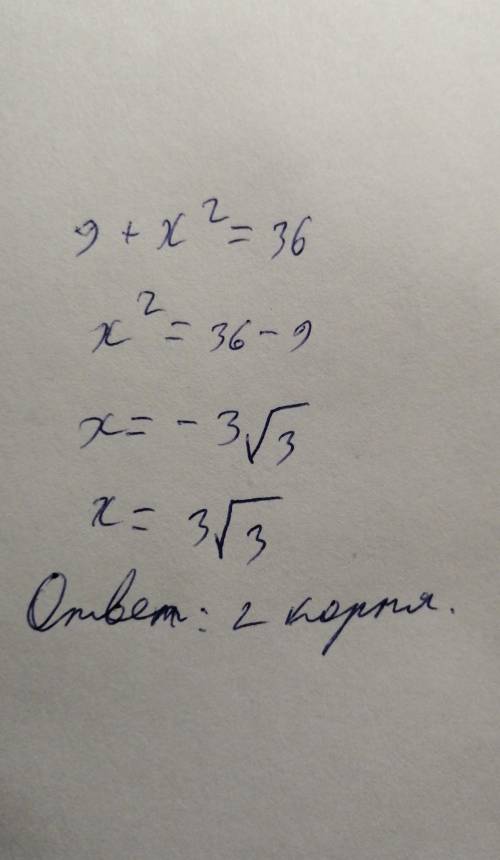 9 + x² = 36
x² = 36 - 9
x = - 3√3
x = 3√3
Ответ: 2 корня.